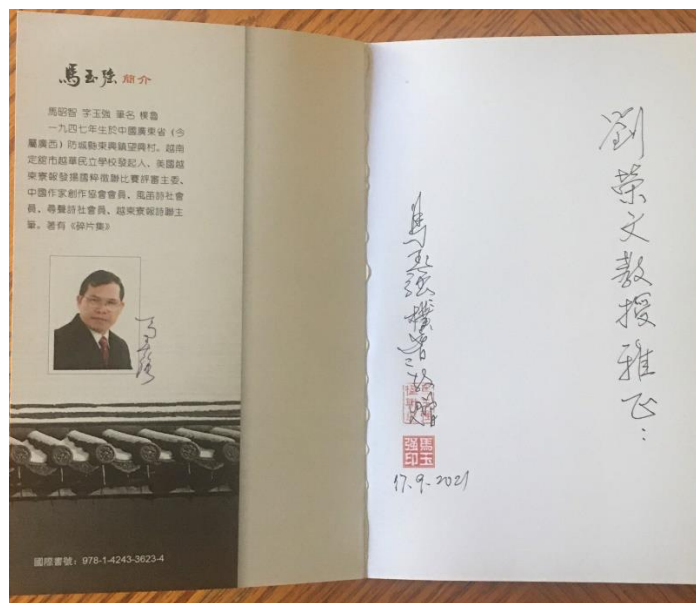 馬玉強 簡介
馬昭智 字玉強 筆名 樸魯
一九四七年生於中國廣東省（今
屬廣西）防城縣東興鎮望興村。越南
定舘市越華民立學校發起人、美國越
柬寮報發揚國粹徵聯比賽評審主委、
中國作家創作協會會員、風笛詩社會
員、尋聲詩社會員、越柬寮報詩聯主
筆。著有《碎片集》
馬玉強
國際書號：978-1-4243-3623-4
劉榮文教授雅正：
馬玉強樸魯敬贈
馬玉
強印
17.9.2021